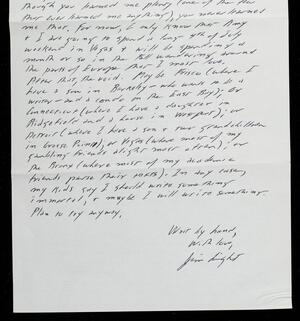 though you warned me plenty (one of the few
that ever warned me anything), you never warned
me that. For now, I only know that Amy
& I are going to spend a long 4th of July
weekend in Vegas & will be spending a
month or so in the Fall wandering around
the parts of Europe that I most love.
After that, the void. Maybe Frisco (where I
have a son in Berkeley who wants to be a
writer and a condo in the East Bay); or
Connecticut (where I have a daughter in
Ridgefield and a house in Westport); or
Detroit (where I have a son & four grandchildren
in Grosse Pointe), or Vegas (where most of my
gambling friends alight most often); or
the Bronx (where most of my academic
friends parse their poets). In any case,
my kids say I should write something
immortal, & maybe I will write something
Plan to try anyway.
West by hand,
With love,
Jim